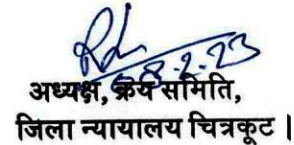 8.2.23
अध्यक्ष, क्रय समिति,
जिला न्यायालय चित्रकूट |